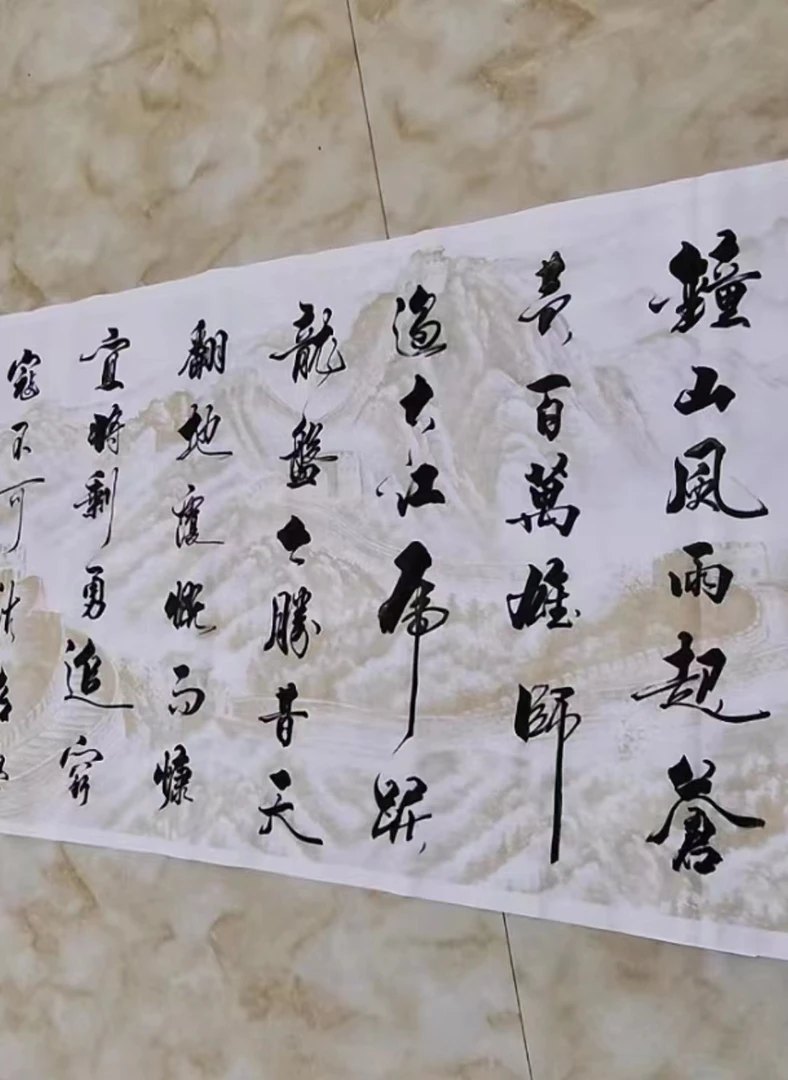 鐘山風雨起蒼
黄百萬雄師
過大江虎踞
龍盤今勝昔天
翻地覆慨而慷
宜將剩勇追窮
寇不可沽名